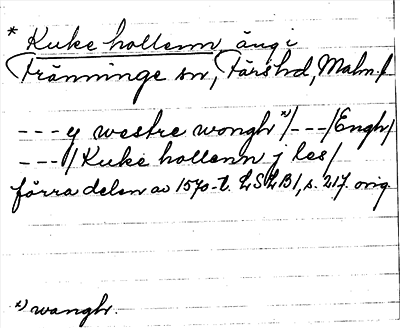 * Kuke hollenn, äng i
Tränninge sn, Färs hd, Malm. l
--- y westre wongh x)/---/Engh/
---/Kuke hollenn j les/
förra delen av 1570-t. LSLB1, s. 217. orig
x) wangh.